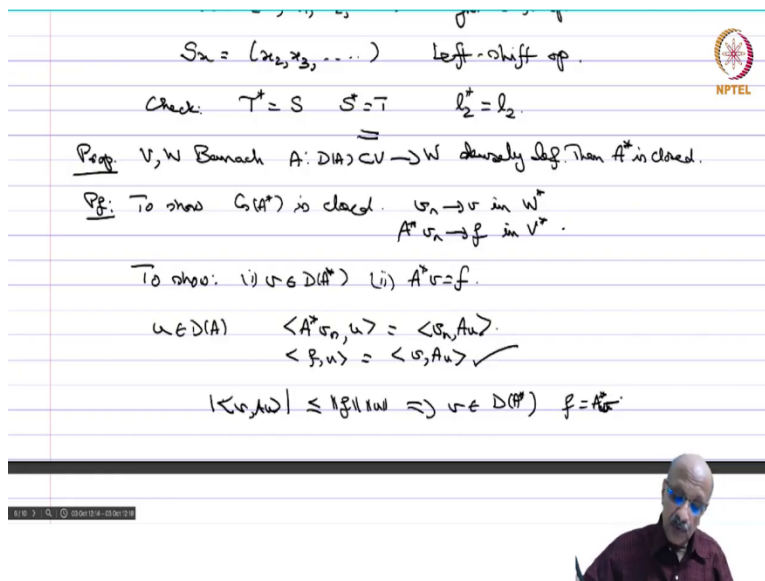 Sx = (x₂, x₃, ....) Left-shift op.
NPTEL
Check: T* = S S* = T l₂* = l₂.
Prop. V, W Banach A: D(A) ⊂ V → W densely def. Then A* is closed.
Pf: To show G(A*) is closed. vₙ → v in W*
A* vₙ → f in V*.
To show: (i) v ∈ D(A*) (ii) A*v = f.
u ∈ D(A) <A*vₙ, u> = <vₙ, Au>.
<f, u> = <v, Au> ✓
|<v, Au>| ≤ ‖f‖ ‖u‖ ⇒ v ∈ D(A*) f = A*v
6/10 03 Oct 12:14 - 03 Oct 12:18